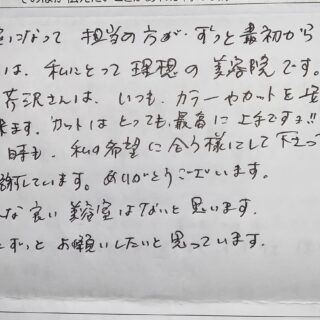 になって 担当の方が、ずっと最初から
は、私にとって理想の美容院です。
芹沢さんは、いつも、カラーやカットを
来ます。カットはとっても最高に上手ですョ!!
時も、私の希望に合う様にして下さって
謝しています。ありがとうございます。
な良い美容室はないと思います。
ずっとお願いしたいと思っています。